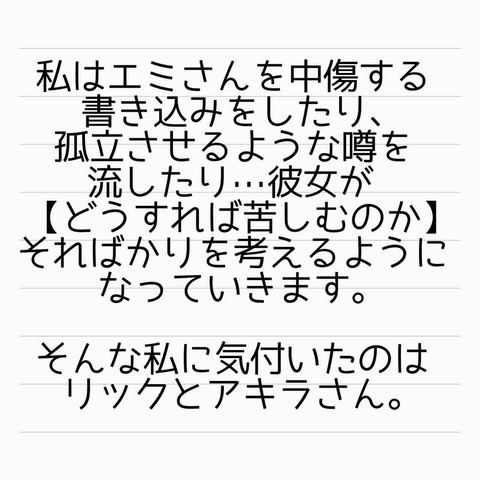 私はエミさんを中傷する
書き込みをしたり、
孤立させるような噂を
流したり…彼女が
【どうすれば苦しむのか】
そればかりを考えるように
なっていきます。
そんな私に気付いたのは
リックとアキラさん。